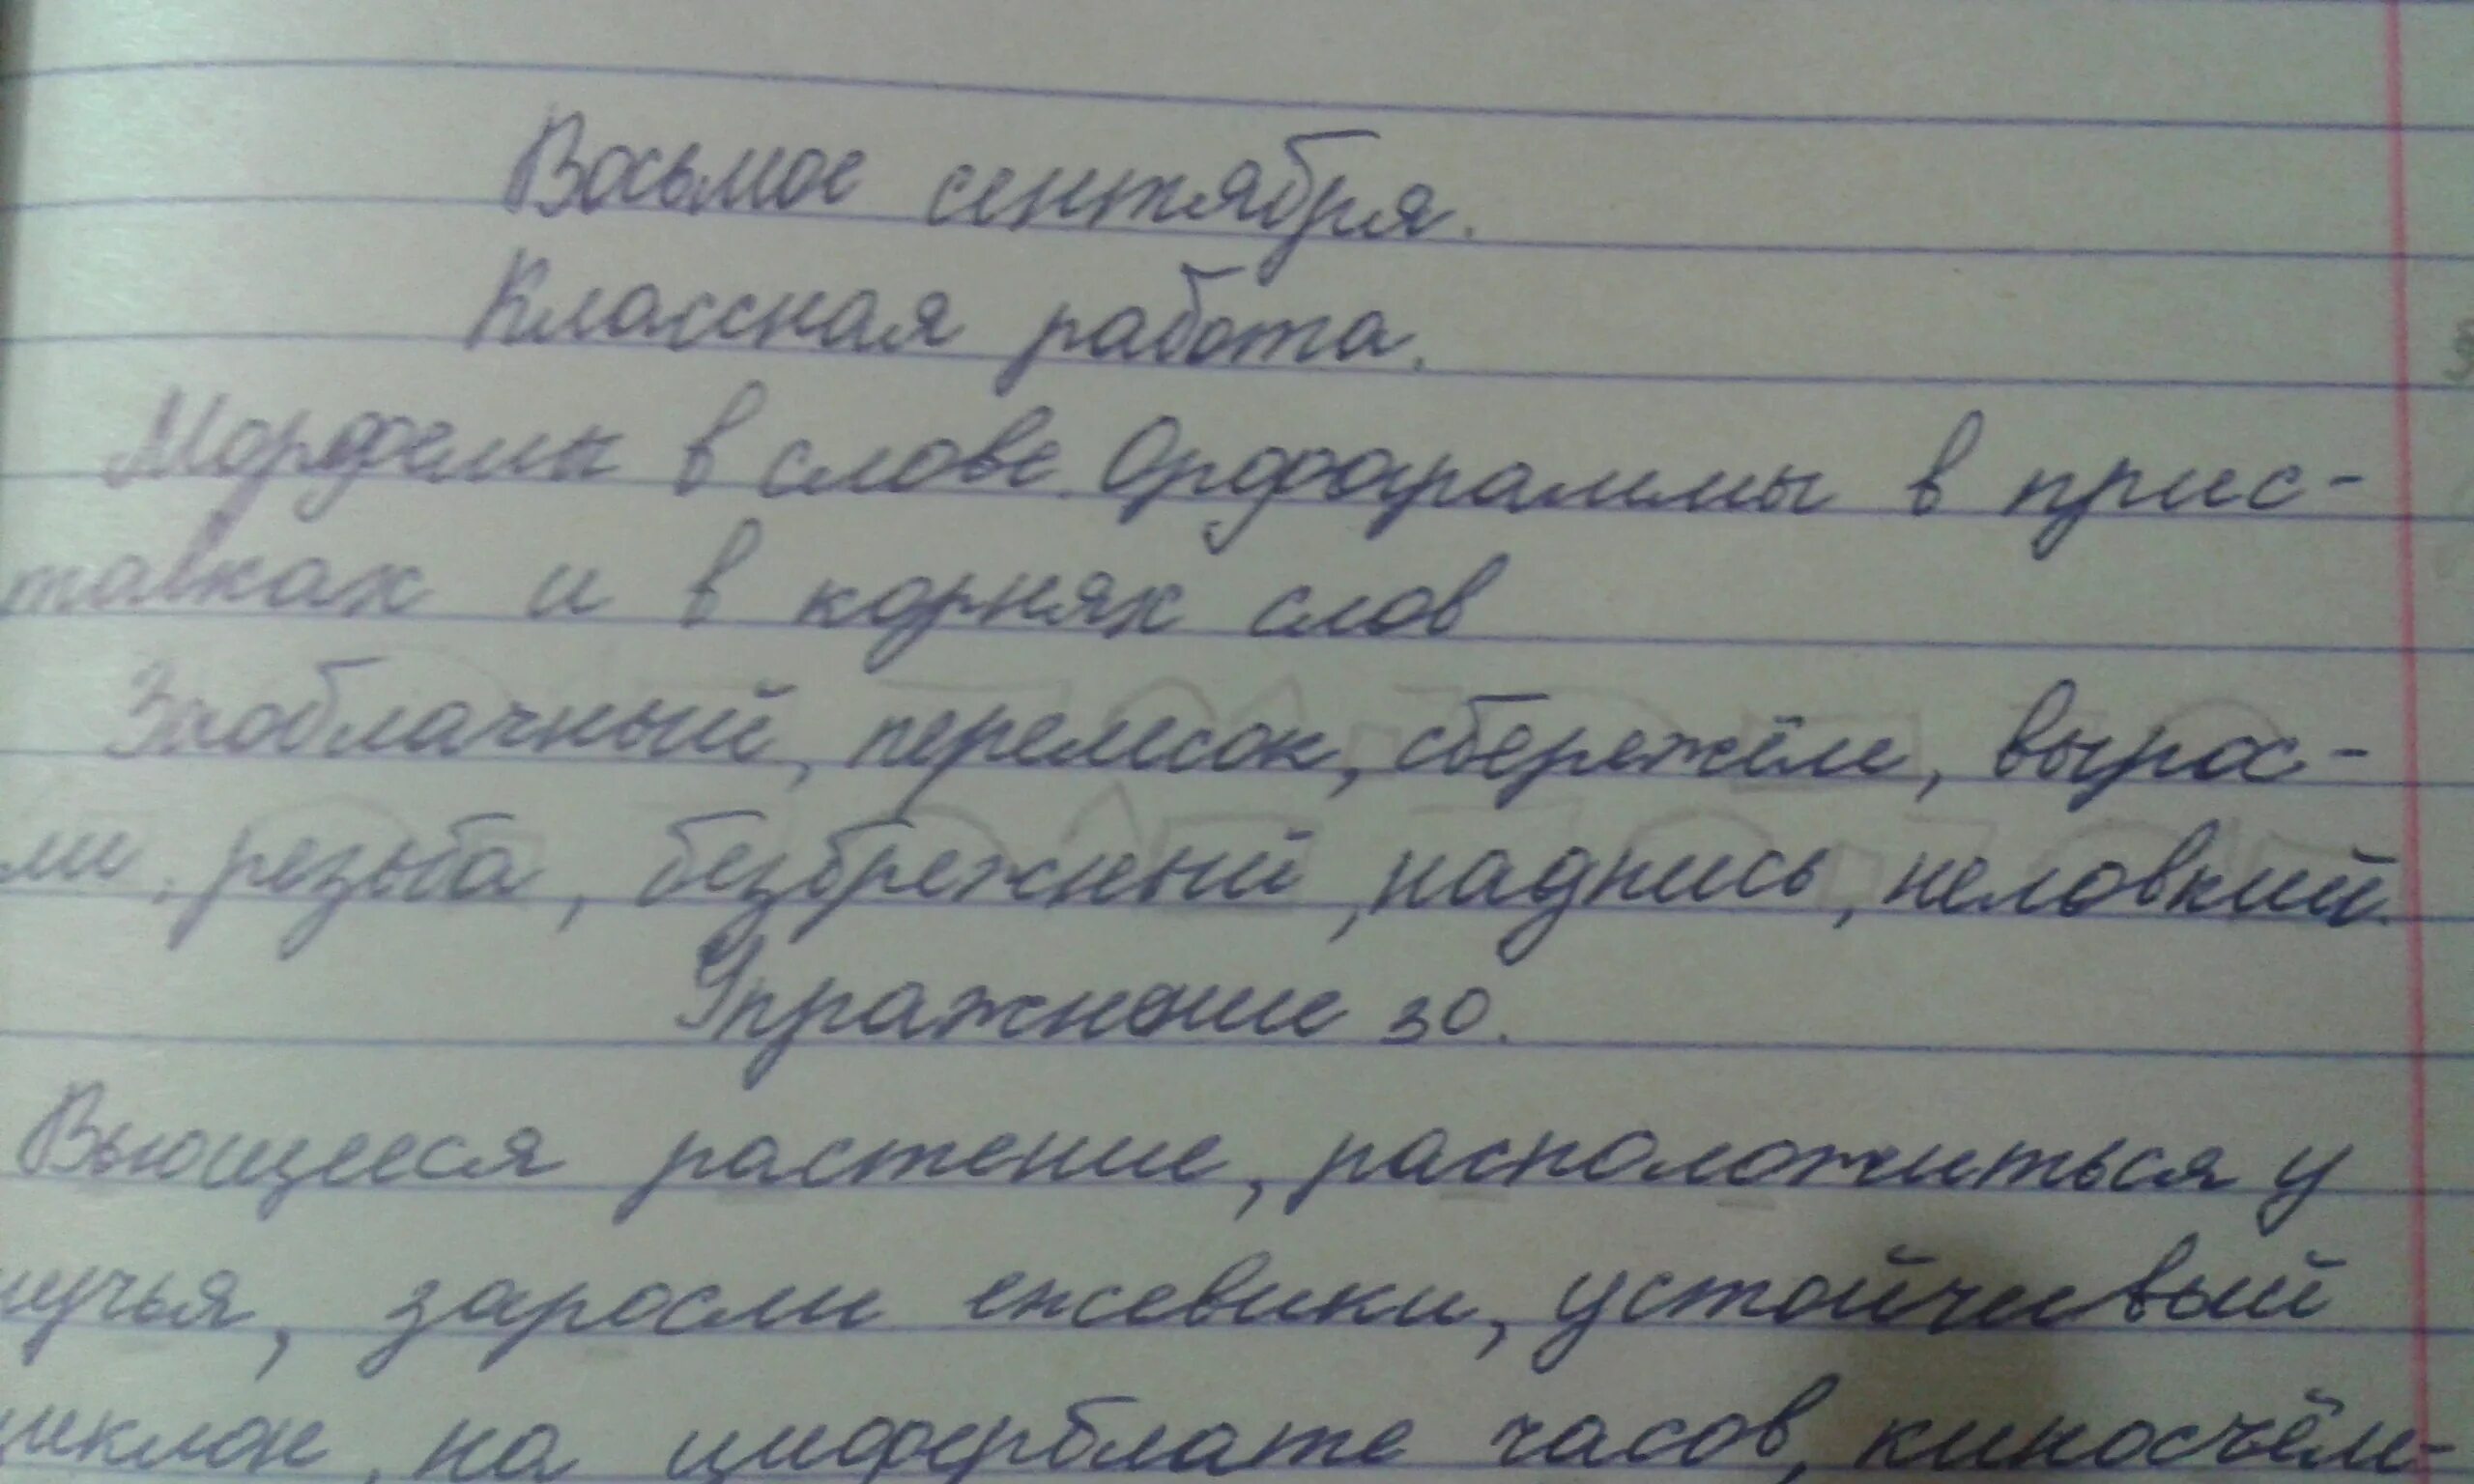 Восьмое сентября.
Классная работа.
Морфемы в слове. Орфограммы в прис-
тавках и в корнях слов
Заоблачный, перелесок, сбережём, вырос-
ли, резьба, безбрежный, надпись, неловкий.
Упражнение 30.
Вьющееся растение, расположиться у
ручья, заросли ежевики, устойчивый
циклон, на циферблате часов, киносчём-